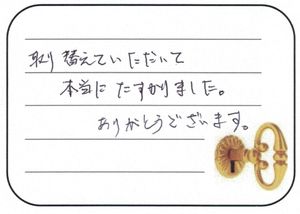 取り替えていただいて
本当にたすかりました。
ありがとうございます。